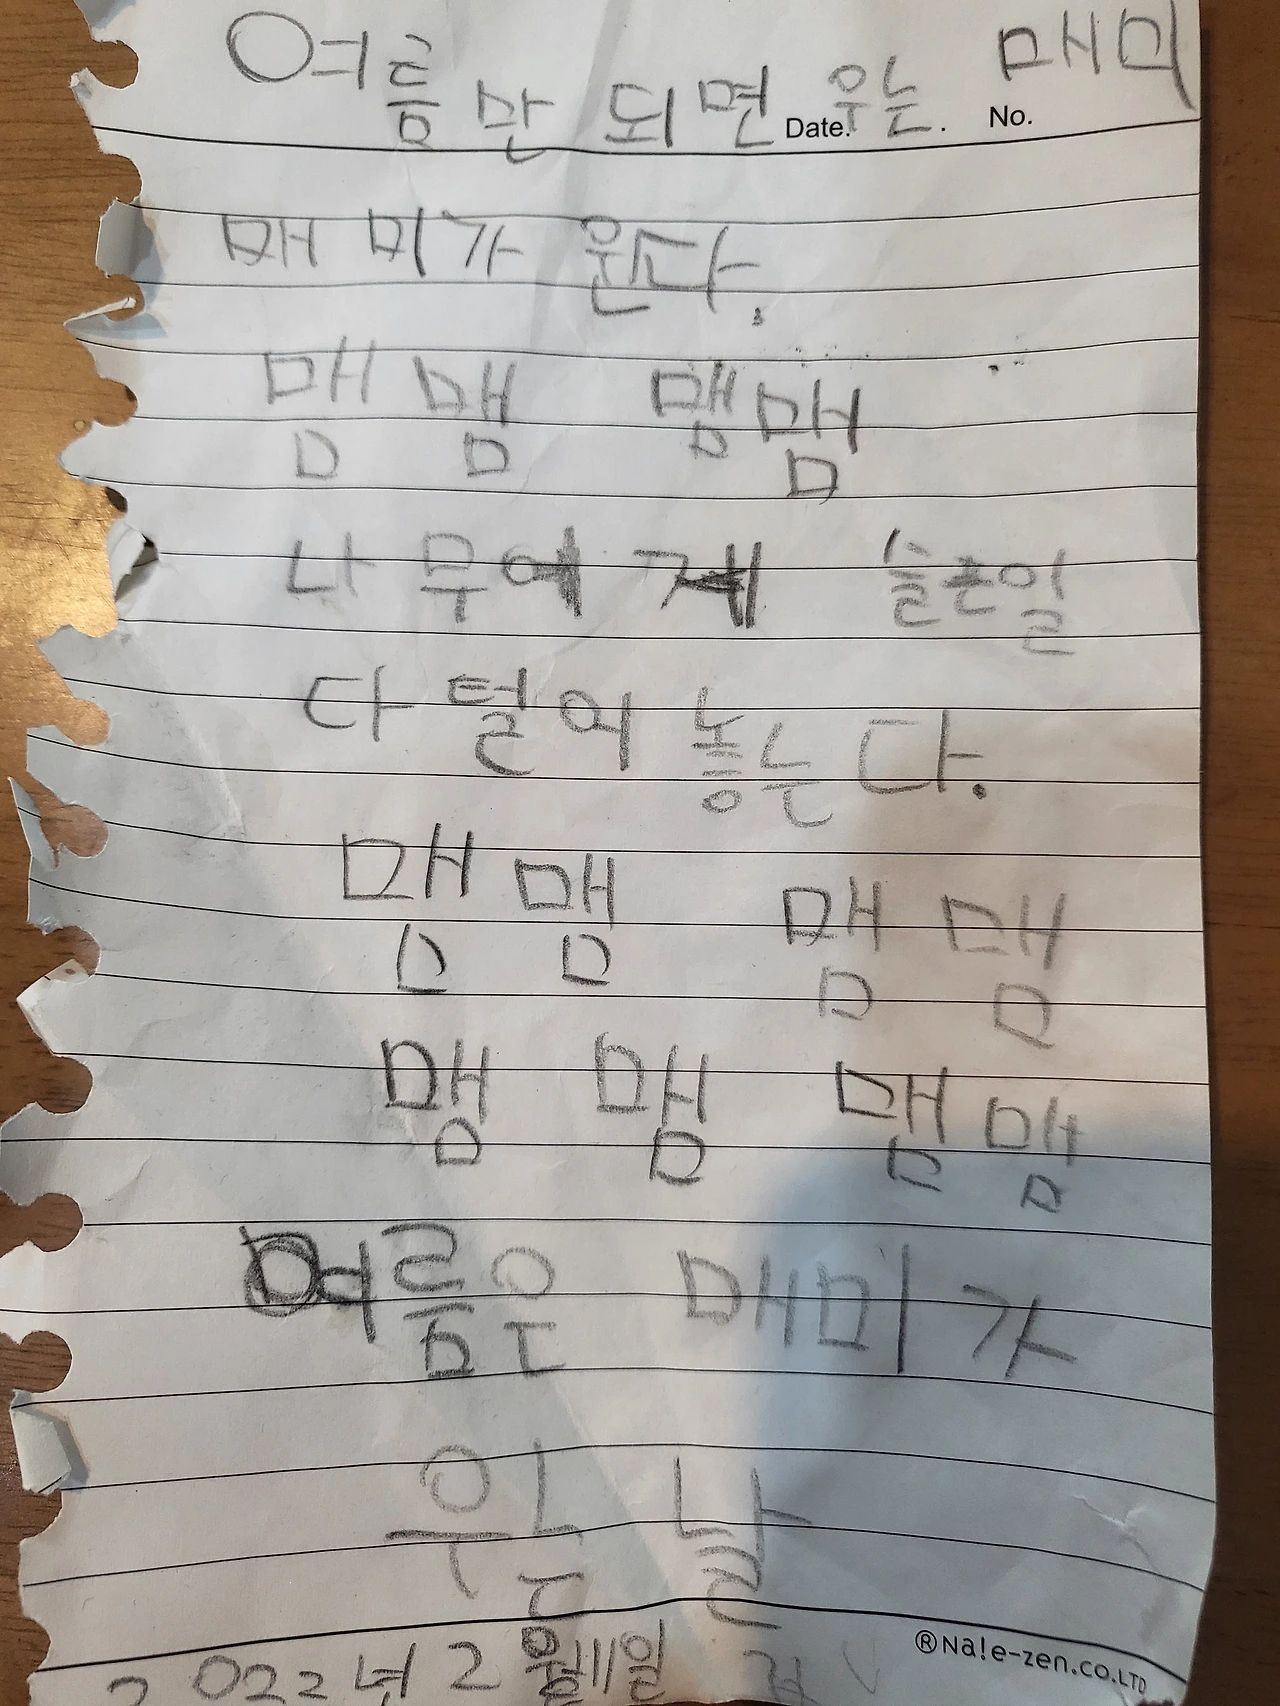 여름만 되면 우는 매미
Date. No.
매미가 운다.
맴 맴 맴 맴
나무에게 슬픈일
다 털어 놓는다.
맴 맴 맴 맴
맴 맴 맴 맴
여름은 매미가
우는 날
®Na!e-zen.co.LTD
2022년 2월11일